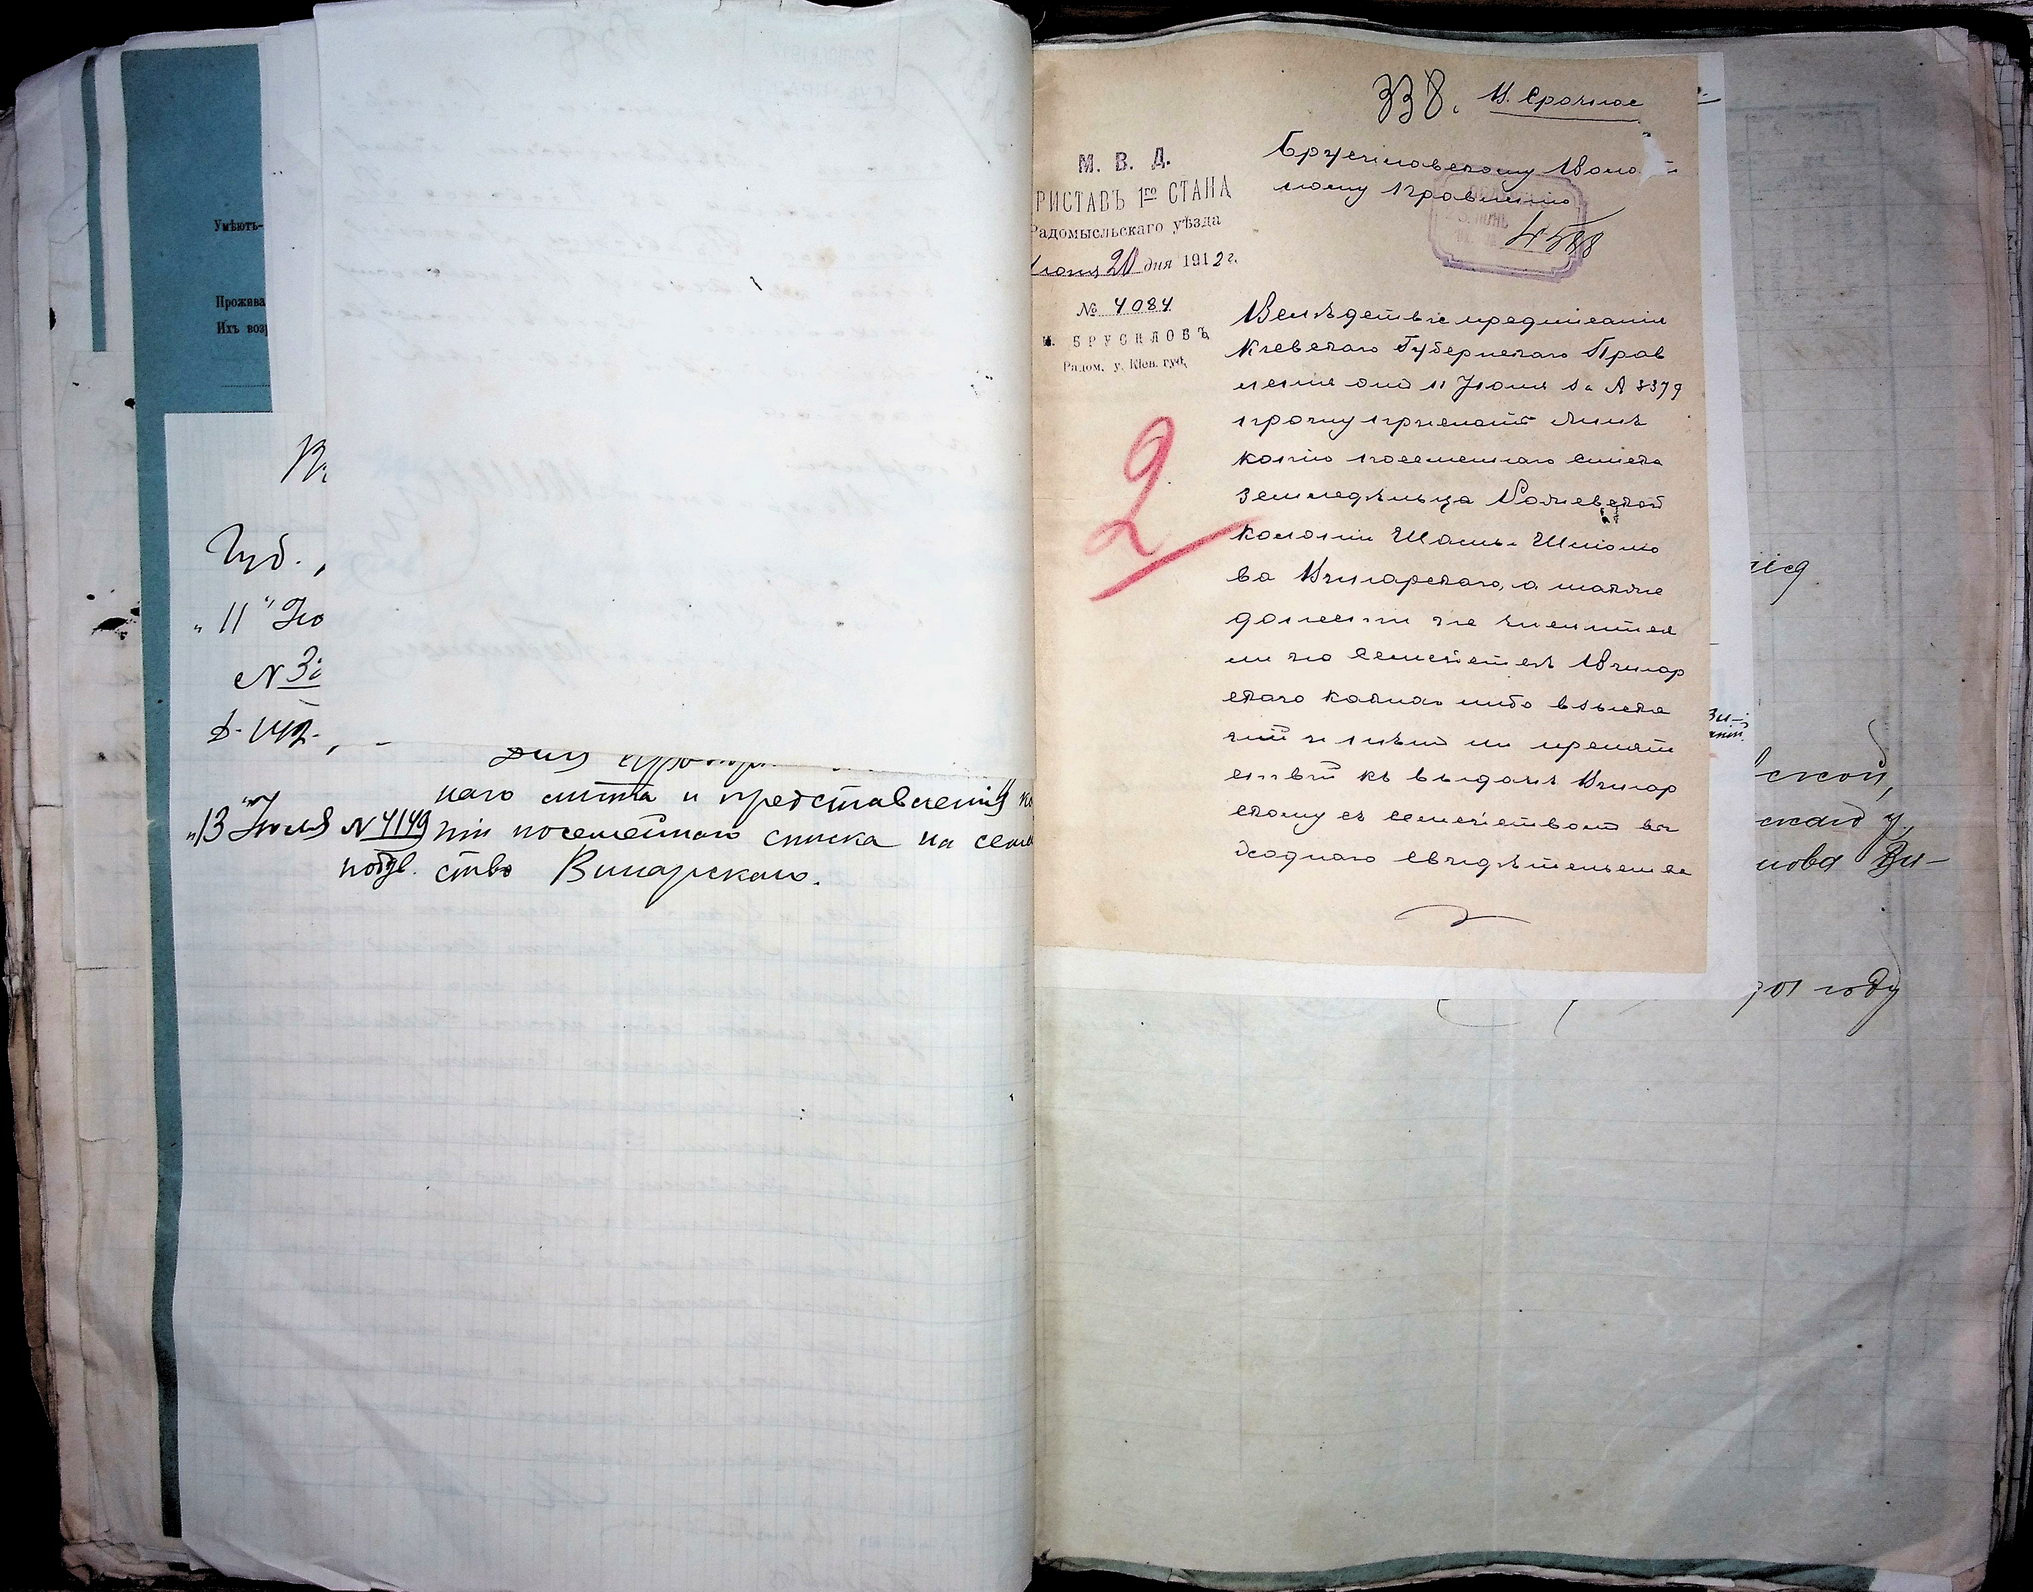 Умѣютъ-
Прожива
Ихъ воз
Губ.
"11" Ію
№ 3
наго листа и представленія ко
"13" Іюля № 4149 піи посемейнаго списка на семей
ство Винарскаго.
338. В. Срочное
М. В. Д.
РИСТАВЪ 1го СТАНА
Радомысльскаго уѣзда
Іюня 20 дня 1912 г.
№ 4084
м. БРУСИЛОВЪ,
Радом. у. Кіев. губ.
Брусиловскому Воло
ному Правленію
4588
Вслѣдствіе предписанія
Кіевскаго Губернскаго Прав
ленія отъ 11 Іюня за № 3379
прошу прислать мнѣ
копію посемейнаго списка
земледѣльца Рожевской
колоніи Шлемы Шліомо
ва Винарскаго, а также
донести не числится
ли за семействомъ Винар
скаго какихъ либо взыска
ній и нѣтъ ли препят
ствій къ выдачѣ Винар
скому съ семействомъ вы
ходного свидѣтельства
2
ской,
скаго у,
нова Ви-
901 году